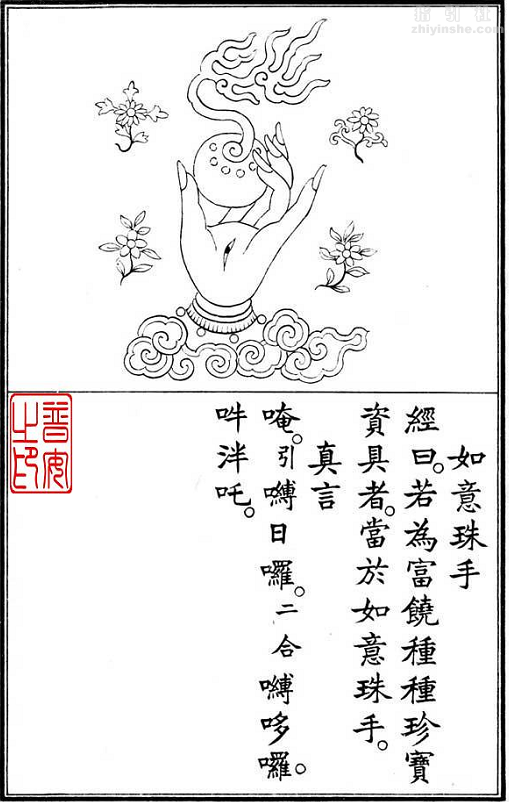 指引社
zhiyinshe.com
如意珠手
經曰。若為富饒種種珍寶
資具者。當於如意珠手。
真言
唵。引嚩日囉。二合嚩哆囉。
吽泮吒。
普安
之印